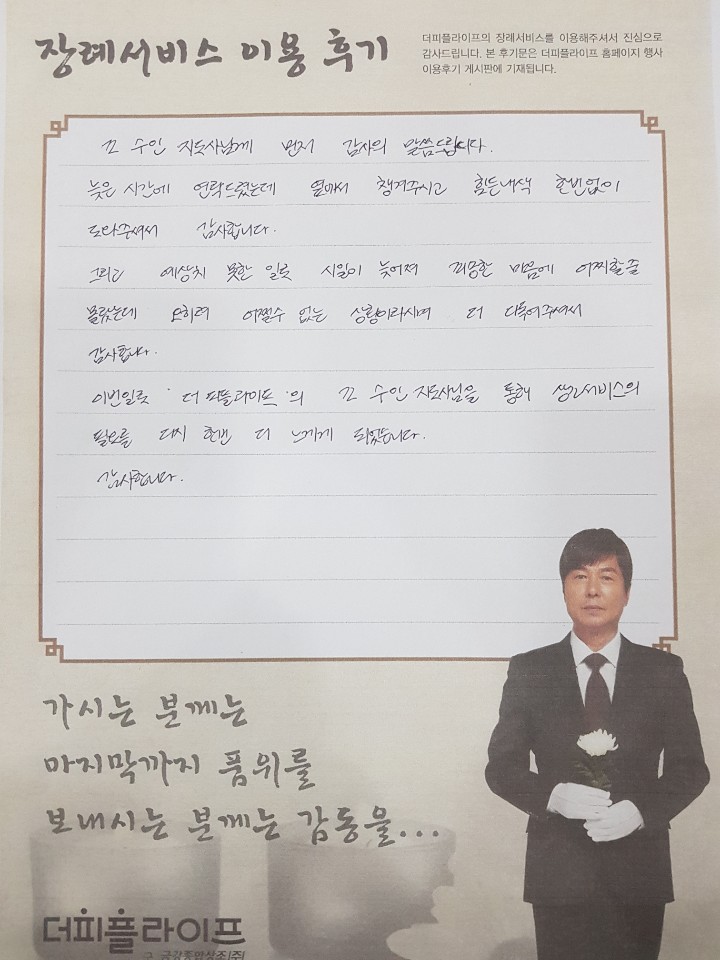 장례서비스 이용 후기
더피플라이프의 장례서비스를 이용해주셔서 진심으로
감사드립니다. 본 후기문은 더피플라이프 홈페이지 행사
이용후기 게시판에 기재됩니다.
고 수인 지도사님께 먼저 감사의 말씀드립니다.
늦은 시간에 연락드렸는데 열마서 챙겨주시고 힘든내색 한번없이
도와주셔서 감사합니다.
그리고 예상치 못한 일로 시일이 늦어져 죄송한 마음에 어찌할줄
몰랐는데 오히려 어쩔수 없는 상황이라시며 더 다독여주셔서
감사합니다.
이번일로 '더피플라이프'의 고 수인 지도사님을 통해 상조서비스의
필요를 다시 한번 더 느끼게 되었습니다.
감사합니다.
가시는 분께는
마지막까지 품위를
보내시는 분께는 감동을...
더피플라이프
구. 금강종합상조(주)